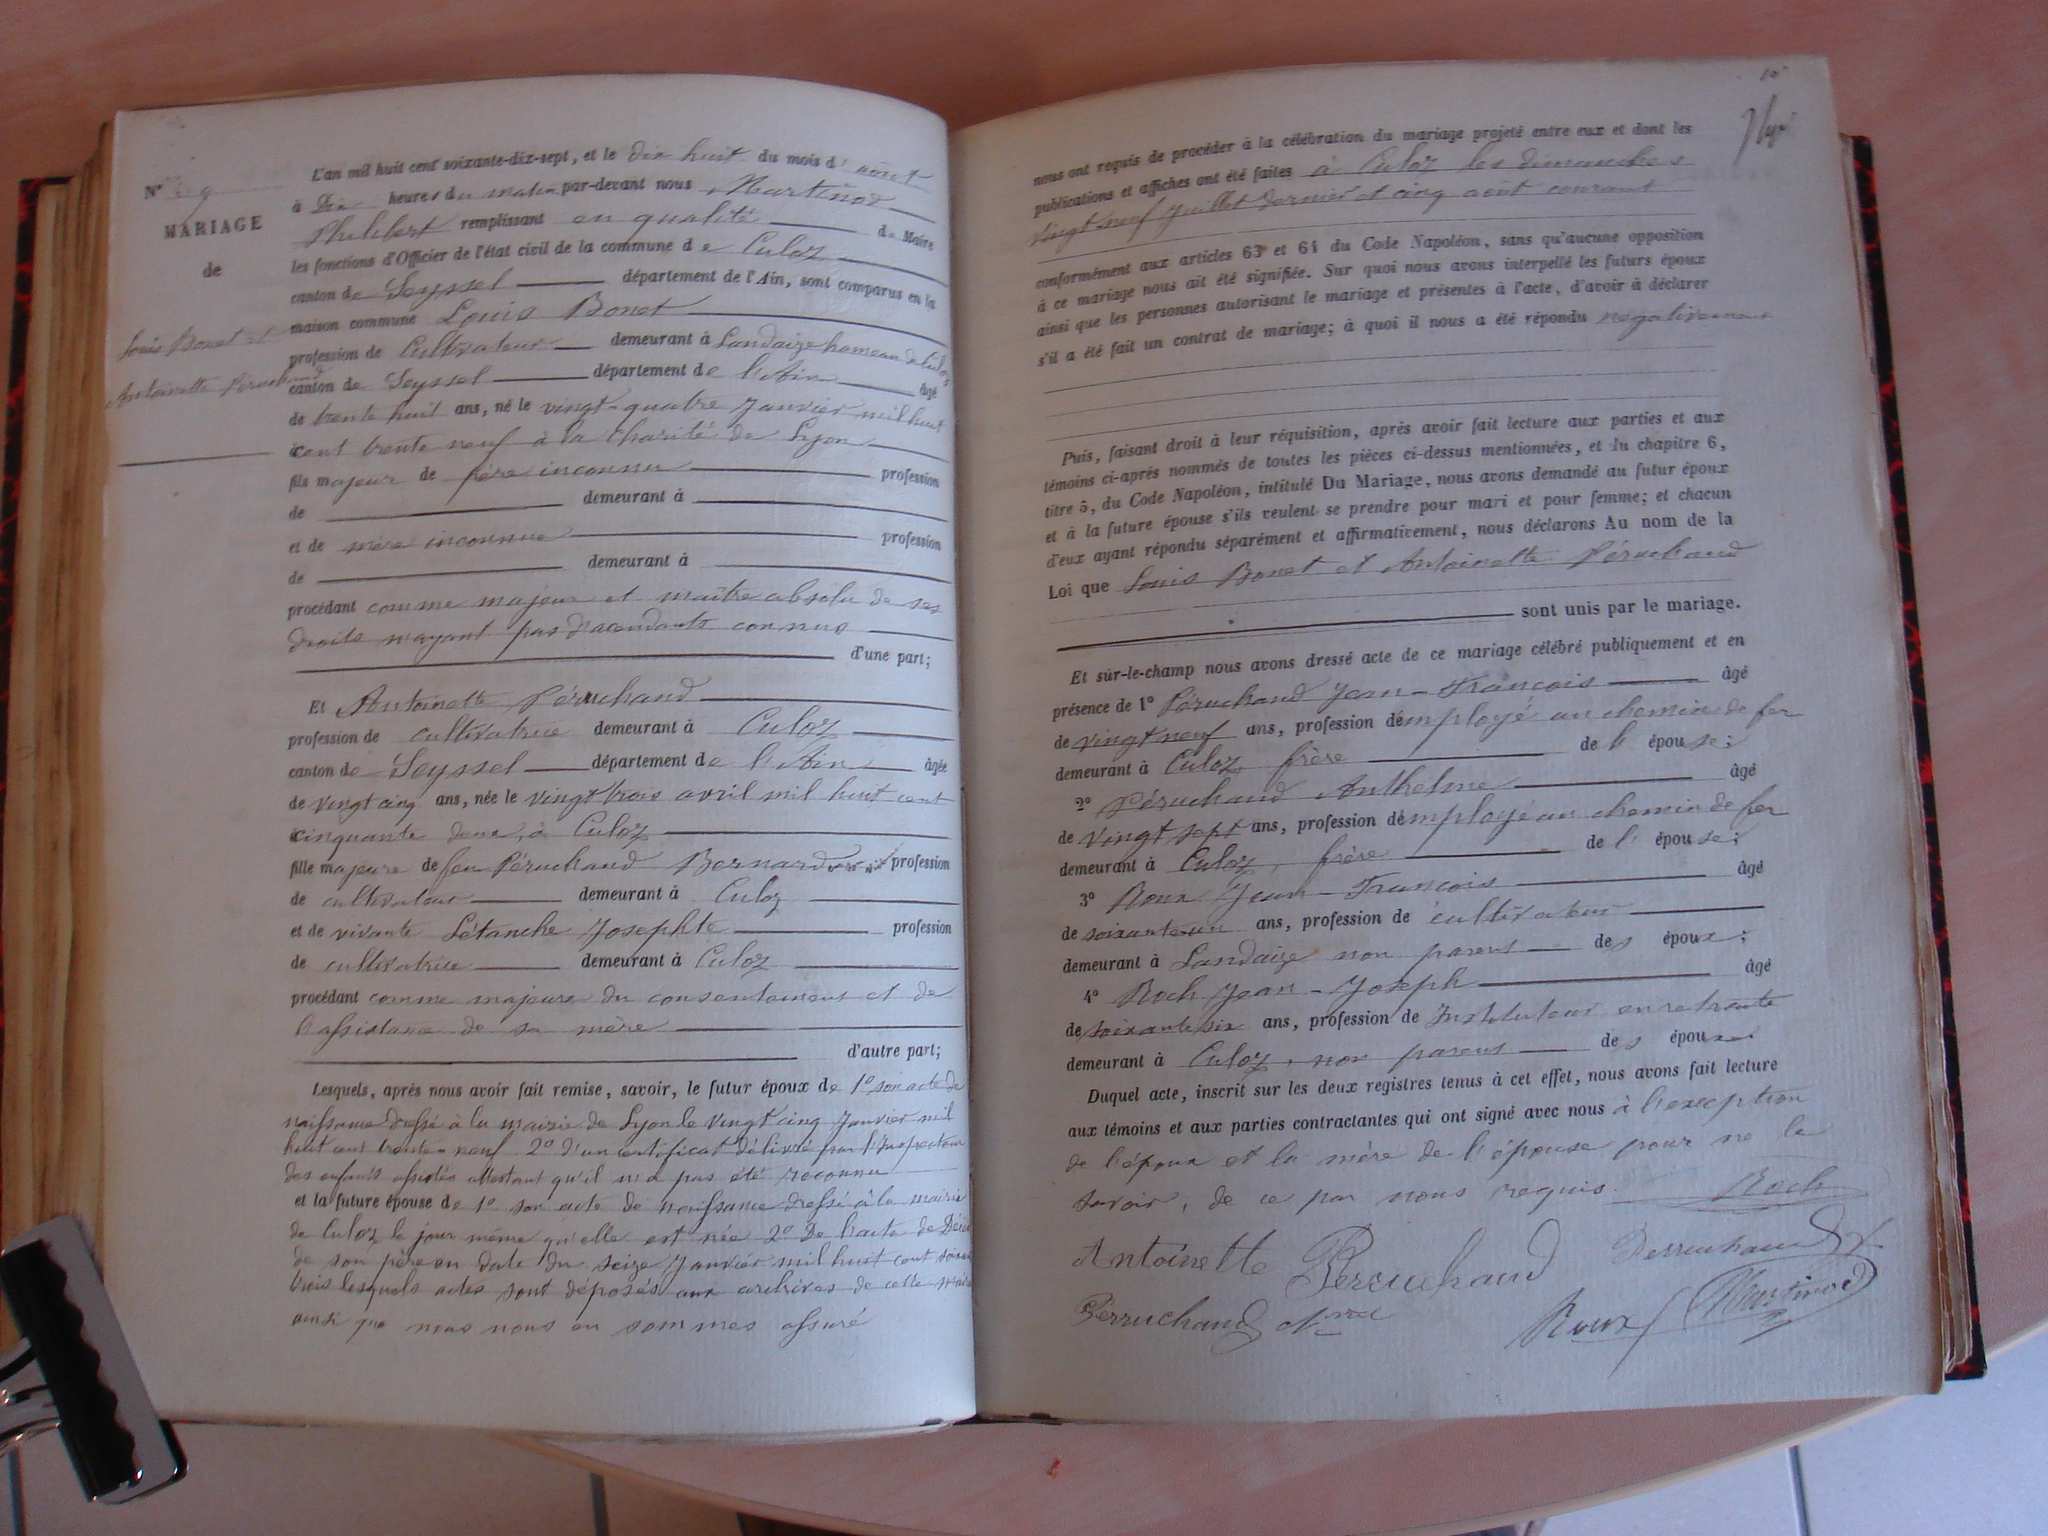 N° 9
MARIAGE
de
Louis Bonet et
Antoinette Péruchand
L'an mil huit cent soixante-dix-sept, et le dix huit du mois d'août
à Dix heures du matin par-devant nous Martinod
Philibert remplissant en qualité de Maire
les fonctions d'Officier de l'état civil de la commune de Culoz
canton de Seyssel département de l'Ain, sont comparus en la
maison commune Louis Bonet
profession de Cultivateur demeurant à Landaize hameau de Culoz
canton de Seyssel département de l'Ain âgé
de trente huit ans, né le vingt-quatre Janvier mil huit
cent trente neuf à la Charité de Lyon
fils majeur de père inconnu profession
de demeurant à
et de mère inconnue profession
de demeurant à
procédant comme majeur et maître absolu de ses
droits n'ayant pas d'ascendants connus
d'une part;
Et Antoinette Péruchand
profession de cultivatrice demeurant à Culoz
canton de Seyssel département de l'Ain âgée
de vingt cinq ans, née le vingt trois avril mil huit cent
cinquante deux, à Culoz
fille majeure de feu Péruchand Bernard profession
de cultivateur demeurant à Culoz
et de vivante Létanche Josephte profession
de cultivatrice demeurant à Culoz
procédant comme majeure du consentement et de
l'assistance de sa mère
d'autre part;
Lesquels, après nous avoir fait remise, savoir, le futur époux de 1° son acte de
naissance dressé à la mairie de Lyon le vingt cinq Janvier mil
huit cent trente-neuf 2° d'un certificat délivré par l'Inspecteur
des enfants assistés attestant qu'il n'a pas été reconnu
et la future épouse de 1° son acte de naissance dressé à la mairie
de Culoz le jour même qu'elle est née 2° De l'acte de Décès
de son père en date du seize Janvier mil huit cent soixante
trois lesquels actes sont déposés aux archives de cette mairie
ainsi que nous nous en sommes assuré
10
nous ont requis de procéder à la célébration du mariage projeté entre eux et dont les
publications et affiches ont été faites à Culoz les dimanches
vingt-neuf Juillet dernier et cinq août courant
conformément aux articles 63 et 64 du Code Napoléon, sans qu'aucune opposition
à ce mariage nous ait été signifiée. Sur quoi nous avons interpellé les futurs époux
ainsi que les personnes autorisant le mariage et présentes à l'acte, d'avoir à déclarer
s'il a été fait un contrat de mariage; à quoi il nous a été répondu négativement
Puis, faisant droit à leur réquisition, après avoir fait lecture aux parties et aux
témoins ci-après nommés de toutes les pièces ci-dessus mentionnées, et du chapitre 6,
titre 5, du Code Napoléon, intitulé Du Mariage, nous avons demandé au futur époux
et à la future épouse s'ils veulent se prendre pour mari et pour femme; et chacun
d'eux ayant répondu séparément et affirmativement, nous déclarons Au nom de la
Loi que Louis Bonet et Antoinette Péruchand
sont unis par le mariage.
Et sur-le-champ nous avons dressé acte de ce mariage célébré publiquement et en
présence de 1° Péruchand Jean-François âgé
de vingt neuf ans, profession d'employé au chemin de fer
demeurant à Culoz frère de l'épouse;
2° Péruchand Anthelme âgé
de vingt sept ans, profession d'employé au chemin de fer
demeurant à Culoz, frère de l'épouse;
3° Roux Jean-François âgé
de soixante un ans, profession de cultivateur
demeurant à Landaize non parent des époux;
4° Roch Jean-Joseph âgé
de soixante six ans, profession de Instituteur en retraite
demeurant à Culoz, non parent des époux
Duquel acte, inscrit sur les deux registres tenus à cet effet, nous avons fait lecture
aux témoins et aux parties contractantes qui ont signé avec nous à l'exception
de l'époux et la mère de l'épouse pour ne le
savoir, de ce par nous requis. Roch
Antoinette Perruchand Perruchand
Perruchand Roux Martinod